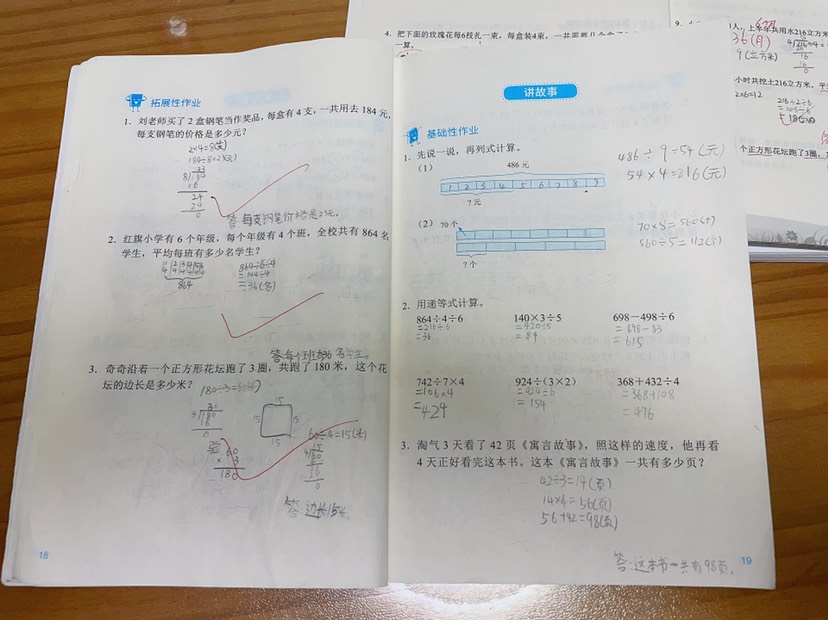 拓展性作业
1. 刘老师买了2盒钢笔当作奖品，每盒有4支，一共用去184元，
每支钢笔的价格是多少元？
2×4=8(支)
184÷8=23(元)
答：每支钢笔价格是23元。
2. 红旗小学有6个年级，每个年级有4个班，全校共有864名
学生，平均每班有多少名学生？
864
864÷6÷4
=144÷4
=36(名)
3. 奇奇沿着一个正方形花坛跑了3圈，共跑了180米，这个花
坛的边长是多少米？
180÷3=60(米)
15
15
15
60÷4=15(米)
答：边长15米。
18
讲故事
基础性作业
1. 先说一说，再列式计算。
(1)
486元
1 2 3 4 5 6 7 8 9
?元
486÷9=54(元)
54×4=216(元)
(2) 70个
?个
70×8=560(个)
560÷5=112(个)
2. 用递等式计算。
864÷4÷6 140×3÷5 698－498÷6
=216÷6 =420÷5 =698-83
=36 =84 =615
742÷7×4 924÷(3×2) 368＋432÷4
=106×4 =924÷6 =368+108
=424 =154 =476
3. 淘气3天看了42页《寓言故事》，照这样的速度，他再看
4天正好看完这本书。这本《寓言故事》一共有多少页？
42÷3=14(页)
14×4=56(页)
56+42=98(页)
答：这本书一共有98页。
19
4. 把下面的玫瑰花每6枝扎一束，每盒装4束，
一算。
9.
人，上半年共用水216立方米
36(月)
9(立方米)
小时共挖土216立方米，平
2×6=12
216÷2÷6
个正方形花坛跑了3圈，